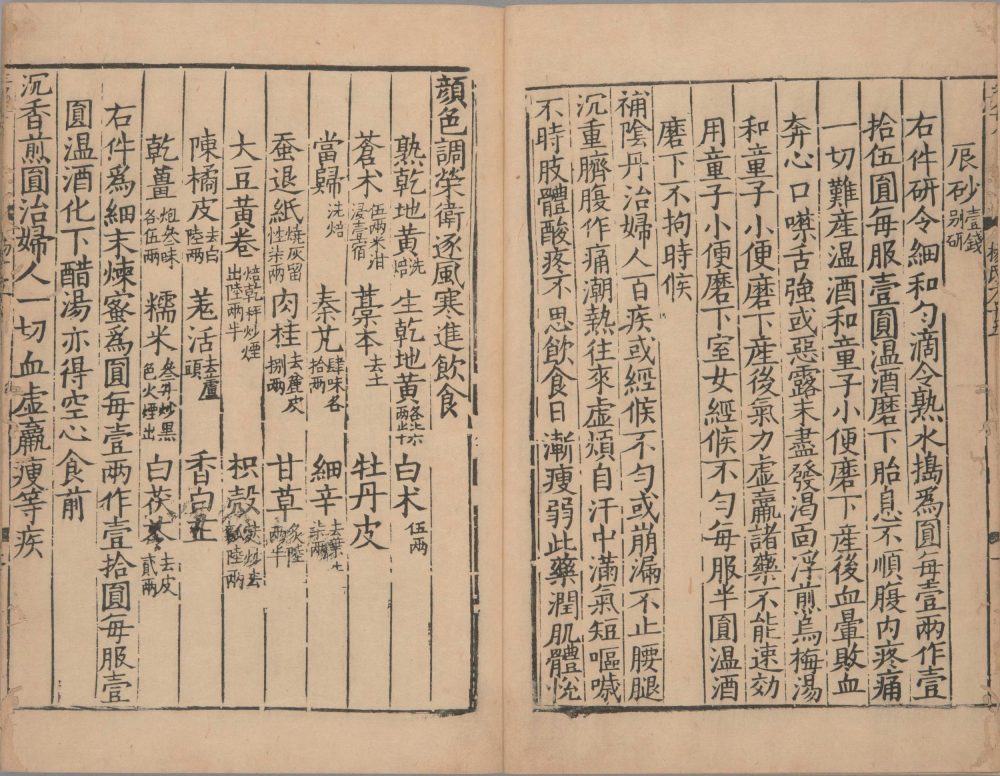 辰砂壹錢別研
右件研令細和勻滴令熟水搗爲圓每壹兩作壹
拾伍圓每服壹圓温酒磨下胎息不順腹内疼痛
一切難産温酒和童子小便磨下産後血暈敗血
奔心口噤舌強或惡露未盡發渴面浮煎烏梅湯
和童子小便磨下産後氣力虚羸諸藥不能速効
用童子小便磨下室女經候不勻每服半圓温酒
磨下不拘時候
補陰丹治婦人百疾或經候不勻或崩漏不止腰腿
沉重臍腹作痛潮熱往來虚煩自汗中滿氣短嘔噦
不時肢體酸疼不思飲食日漸瘦弱此藥潤肌體悅
顔色調榮衛逐風寒進飲食
熟乾地黄洗焙 生乾地黄 白术伍兩
蒼术伍兩米泔浸壹宿 藁本去土 牡丹皮
當歸洗焙 秦艽肆味各拾兩 細辛去葉柒兩
蚕退紙燒灰留性柒兩 肉桂去麄皮捌兩 甘草炙陸兩半
大豆黄卷焙乾秤炒煙出陸兩半 枳殼
陳橘皮去白陸兩 羗活去蘆頭 香白芷
乾薑炮叁味各伍兩 糯米叁升炒黑色火煙出 白茯苓去皮貳兩
右件爲細末煉蜜爲圓每壹兩作壹拾圓每服壹
圓温酒化下醋湯亦得空心食前
沉香煎圓治婦人一切血虚羸瘦等疾